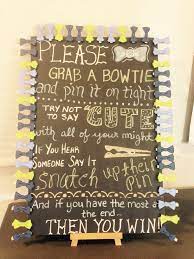 PLEASE
GRAB A BOWTIE
and pin it on tight
TRY NOT TO SAY "CUTE"
with all of your might
IF YOU HEAR
SOMEONE SAY IT
snatch up their
PIN
And if you have the most at
the end...
THEN YOU WIN!